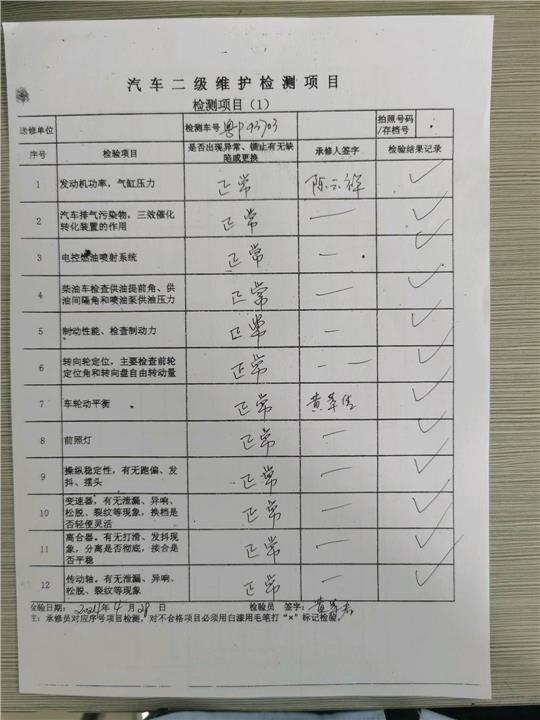 汽车二级维护检测项目
检测项目（1）
送修单位 检测车号 粤P93703 拍照号码/存档号
序号 检验项目 是否出现异常、锁止有无缺陷或更换 承修人签字 检验结果记录
1 发动机功率，气缸压力 正常 陈云祥 ✓
2 汽车排气污染物，三效催化转化装置的作用 正常 — ✓
3 电控燃油喷射系统 正常 — ✓
4 柴油车检查供油提前角、供油间隔角和喷油泵供油压力 正常 — ✓
5 制动性能、检查制动力 正常 — ✓
6 转向轮定位，主要检查前轮定位角和转向盘自由转动量 正常 — — ✓
7 车轮动平衡 正常 黄 ✓
8 前照灯 正常 — ✓
9 操纵稳定性，有无跑偏、发抖、摆头 正常 — ✓
10 变速器，有无泄漏、异响、松脱、裂纹等现象，换档是否轻便灵活 正常 — ✓
11 离合器。有无打滑、发抖现象，分离是否彻底，接合是否平稳 正常 — ✓
12 传动轴。有无泄漏、异响、松脱、裂纹等现象 正常 — ✓
检日期： 年 4 月 28 日 检验员 签字：黄
：承修员对应序号项目检测，对不合格项目必须用白漆用毛笔打“×”标记检验。